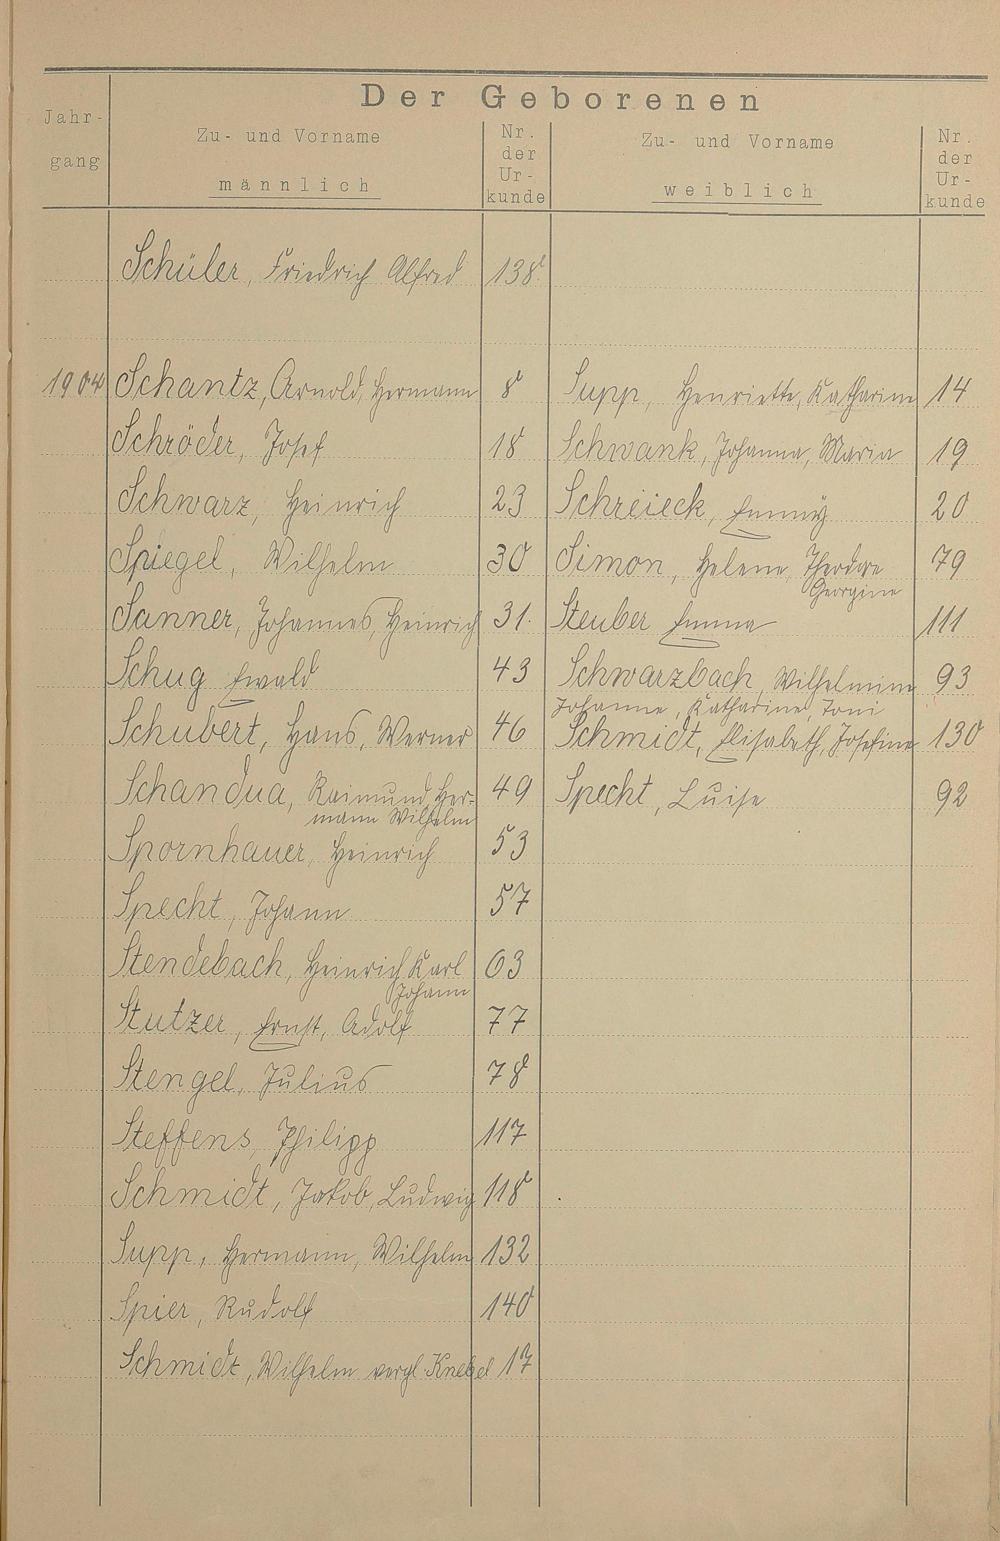 Der Geborenen
Jahr-
gang
Zu- und Vorname
männlich
Nr.
der
Ur-
kunde
Zu- und Vorname
weiblich
Nr.
der
Ur-
kunde
Schüler, Friedrich Alfred 138
1904 Schantz, Arnold, Hermann 8 Supp, Henriette, Katharine 14
Schröder, Josef 18 Schwank, Johanna, Maria 19
Schwarz, Heinrich 23 Schreieck, Emmÿ 20
Spiegel, Wilhelm 30 Simon, Helene, Theodore 79
Georgine
Sanner, Johannes, Heinrich 31. Steuber Emma 111
Schug Ewald 43 Schwarzbach, Wilhelmine 93
Johanne, Katharine, Toni
Schubert, Hans, Werner 46 Schmidt, Elisabeth, Josefine 130
Schandua, Raimund, Her- 49 Specht, Luise 92
mann Wilhelm
Spornhauer, Heinrich 53
Specht, Johann 57
Stendebach, Heinrich Karl 63
Johann
Stutzer, Ernst, Adolf 77
Stengel, Julius 78
Steffens, Philipp 117
Schmidt, Jakob, Ludwig 118
Supp, Hermann, Wilhelm 132
Spier, Rudolf 140
Schmidt, Wilhelm vergl. Knebel 17